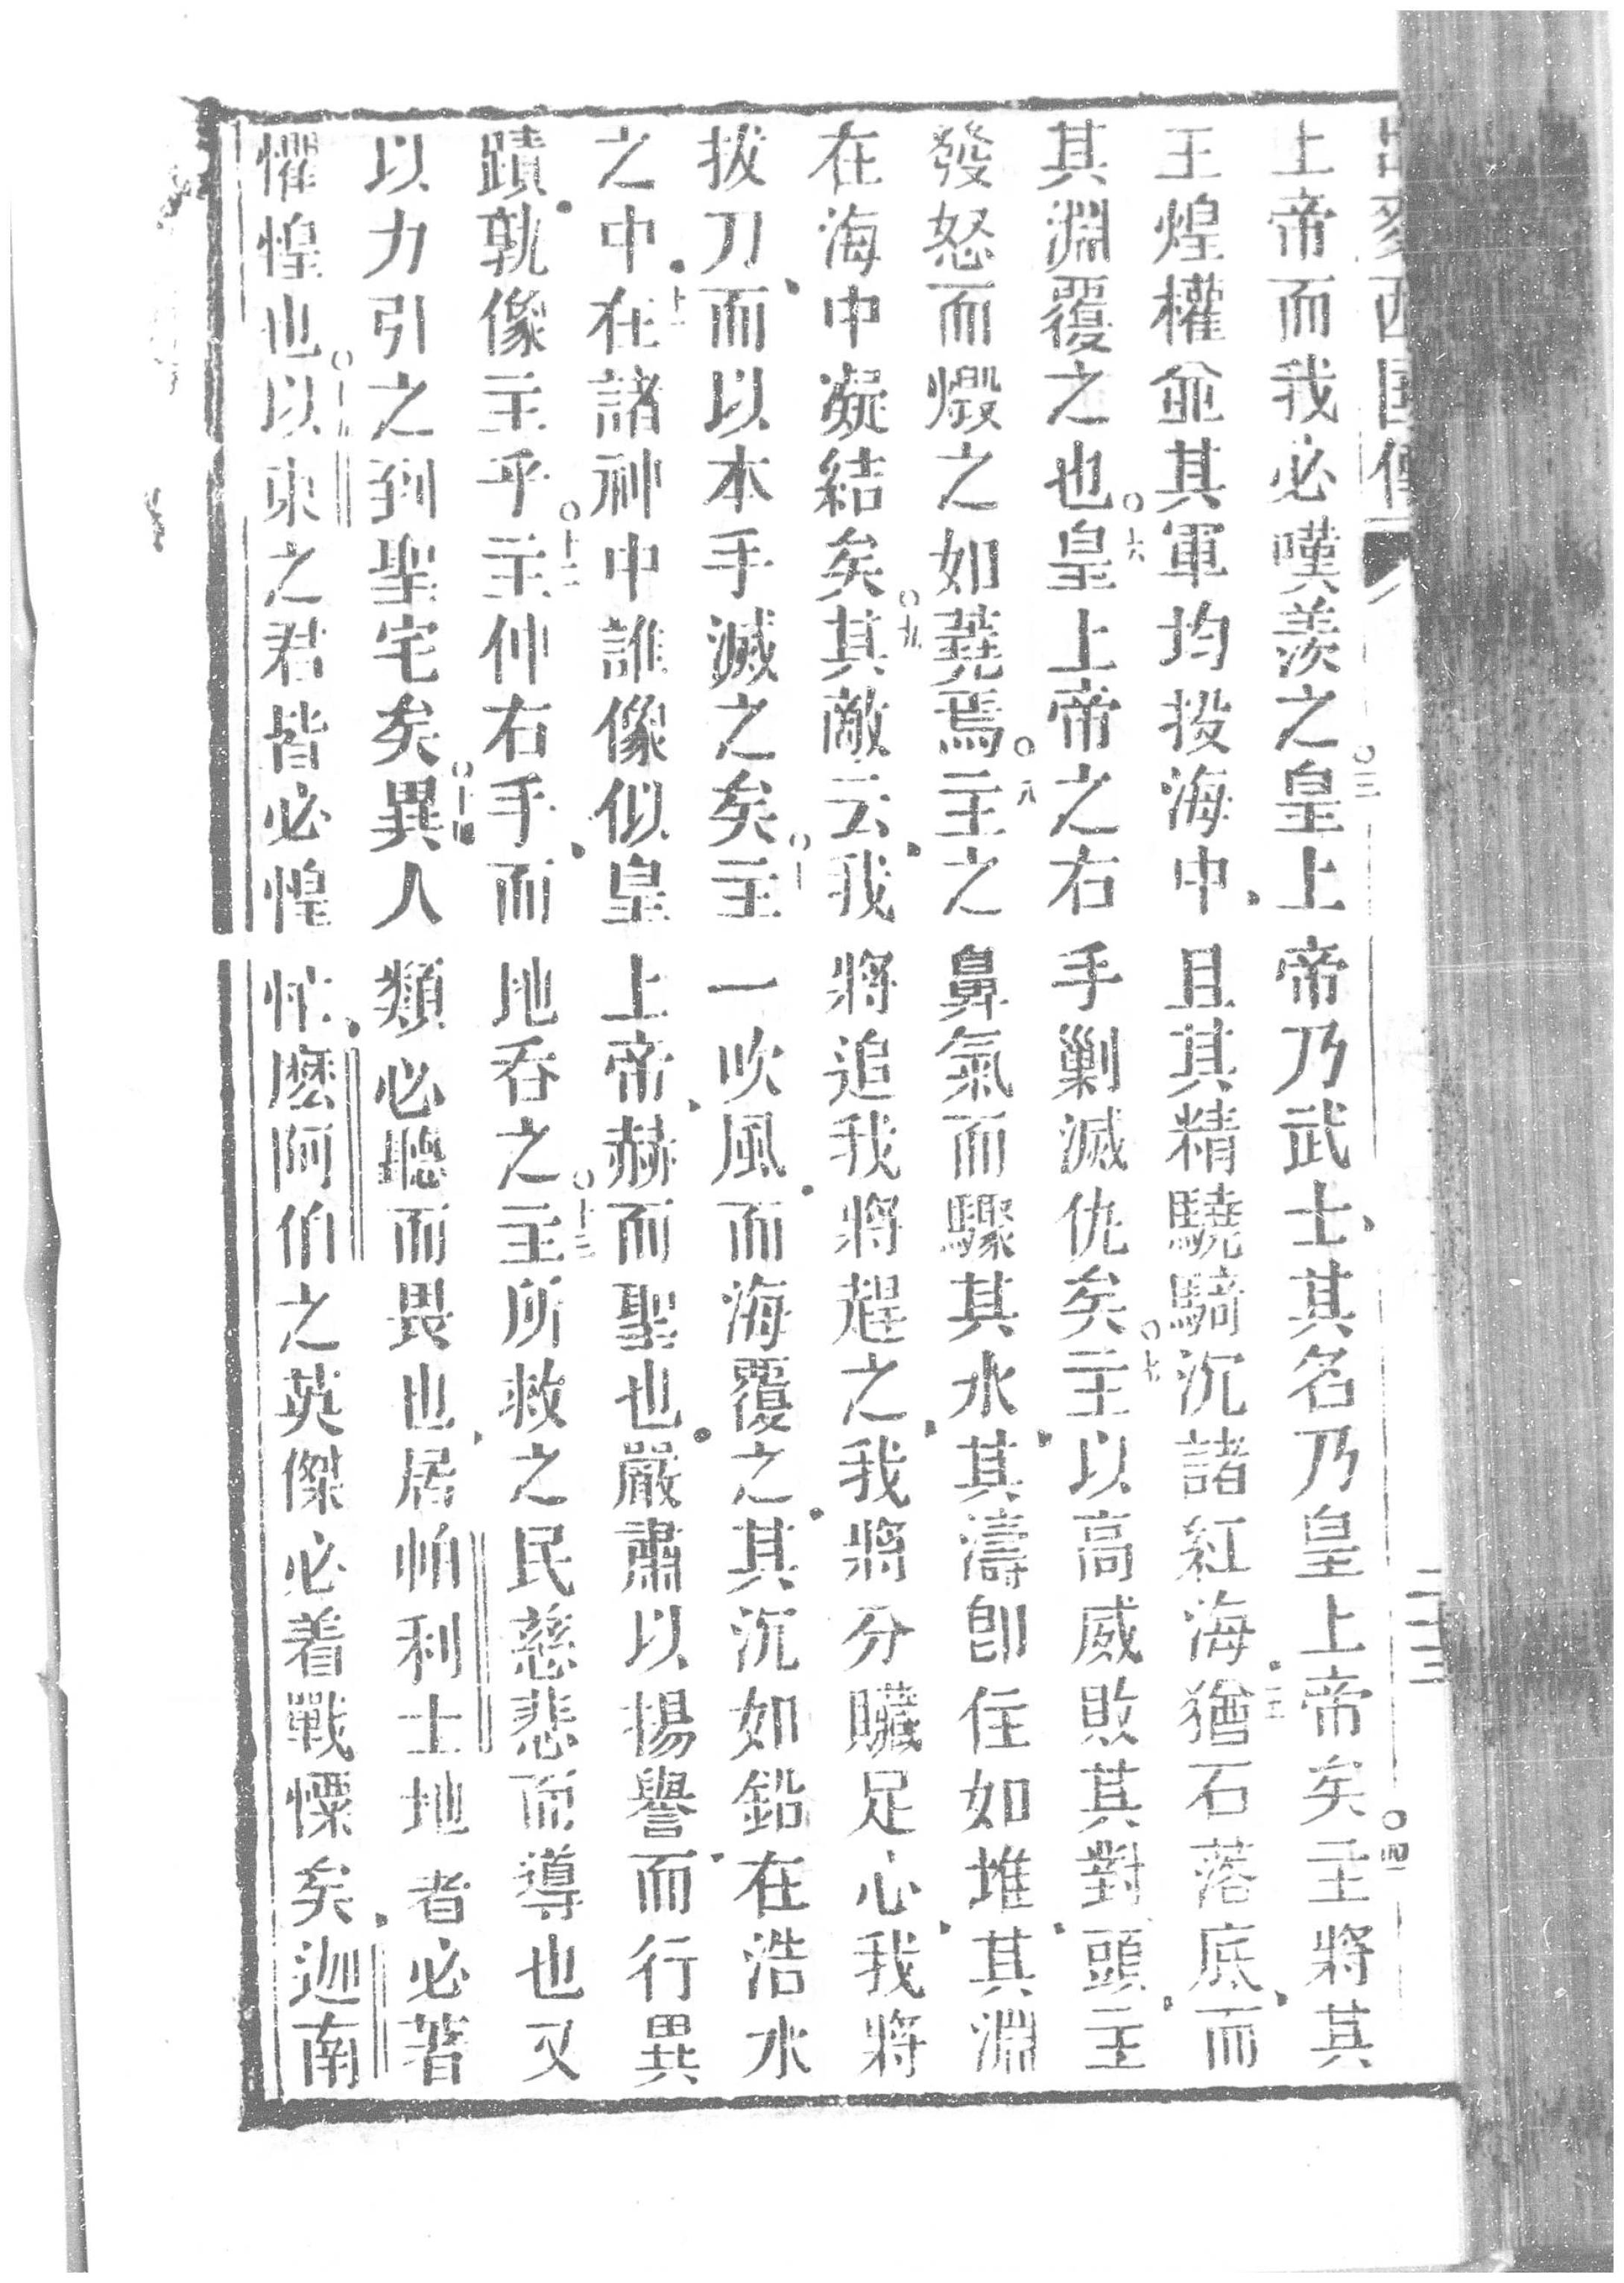 麥西国傳
二十三
上帝而我必嘆羨之○三皇上帝乃武士、其名乃皇上帝矣○四主將其
王煌權並其軍均投海中、且其精驍騎沉諸紅海○五猶石落底、而
其淵覆之也○六皇上帝之右手剿滅仇矣○七主以高威敗其對頭、主
發怒而燬之如蕘焉○八主之鼻氣而驟其水、其濤卽住如堆、其淵
在海中凝結矣○九其敵云、我將追我將趕之、我將分贓足心、我將
拔刀、而以本手滅之矣○十主一吹風、而海覆之、其沉如鉛在浩水
之中、○十一在諸神中誰像似皇上帝、赫而聖也、嚴肅以揚譽、而行異
蹟、孰像主乎○十二主伸右手、而地吞之○十三主所救之民慈悲而導也又
以力引之到聖宅矣○十四異人類必聽而畏也、居帕利士地者必著
懼惶也○十五以東之君皆必惶忙、麽阿伯之英傑必着戰慄矣、迦南